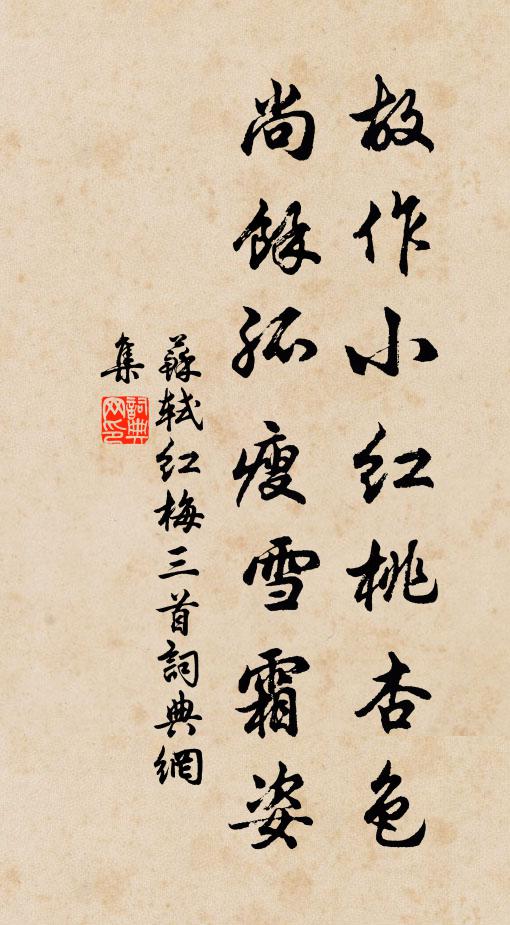 故作小红桃杏色
尚餘孤瘦雪霜姿
蘇軾红梅三首詞典網
集
詞典
网印